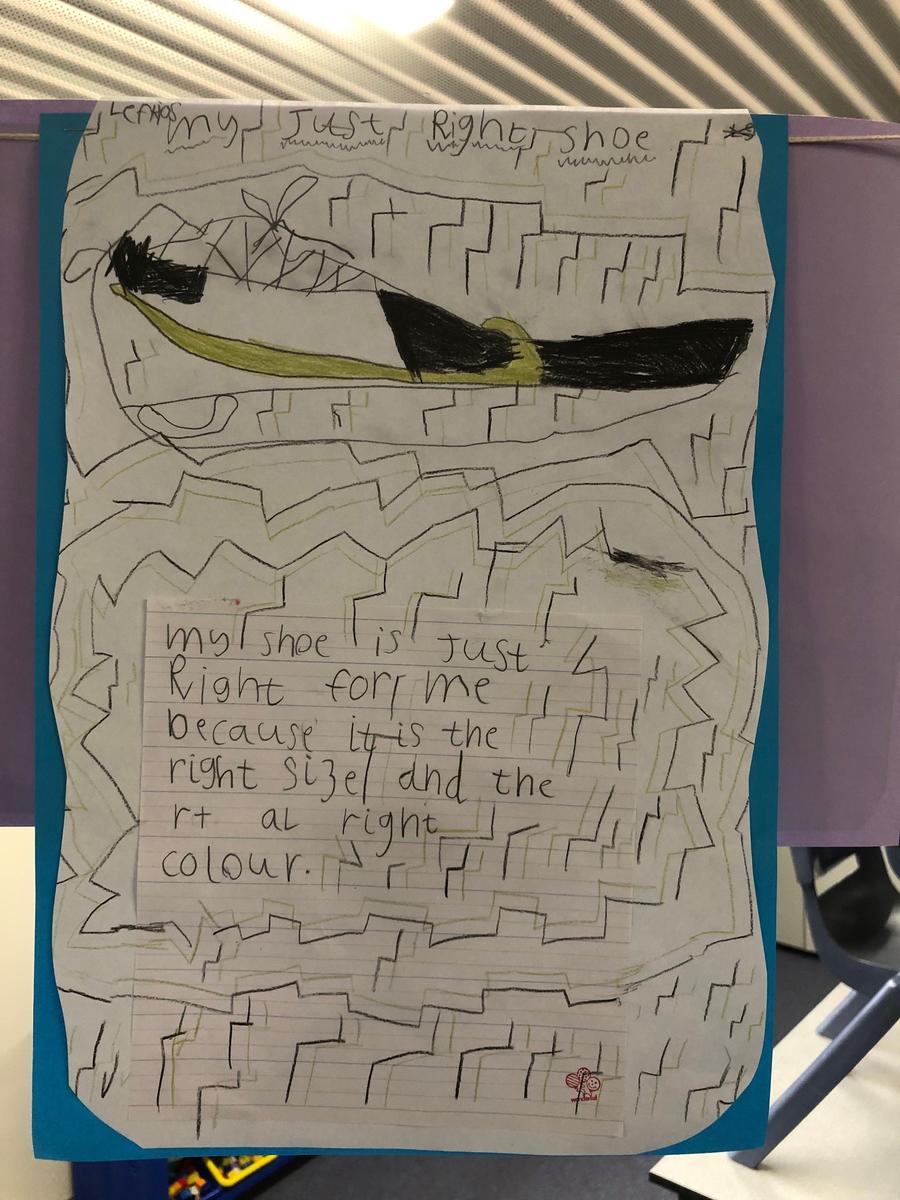 my Just Right shoe
my shoe is Just
Right for me
because it is the
right size and the
rt al right
colour.